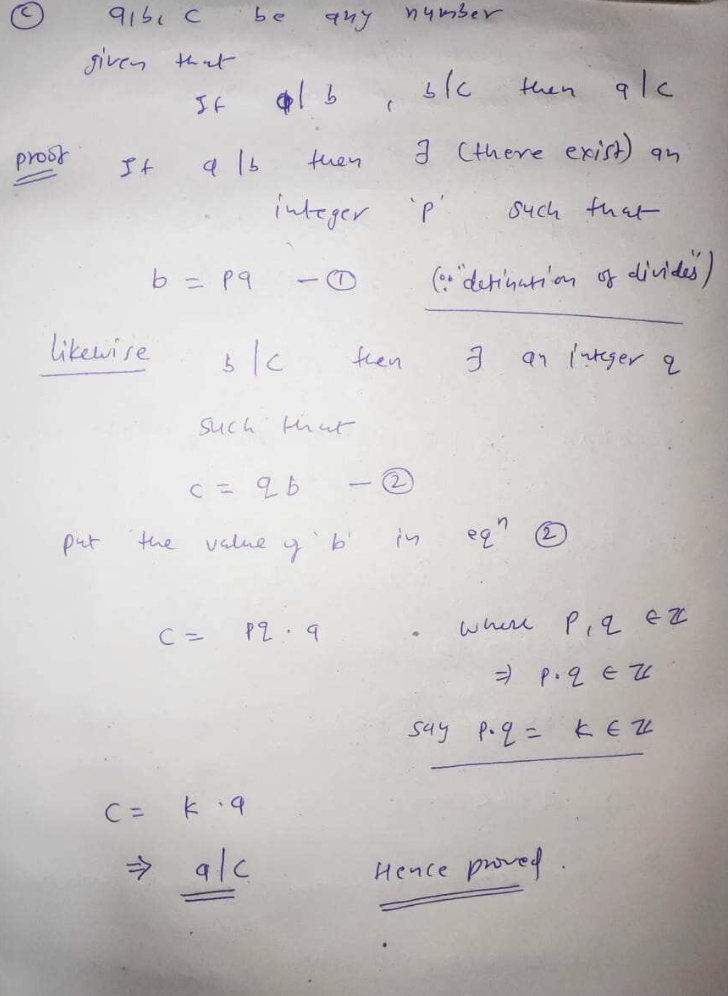 (c) a, b, c be any number
given that
If a | b , b | c then a | c
proof If a | b then ∃ (there exist) an
integer 'p' such that
b = pa — ① (∵ "defination of divides")
likewise b | c then ∃ an integer q
such that
c = qb — ②
put the value of 'b' in eqⁿ ②
c = pq · a . where p, q ∈ ℤ
⇒ p·q ∈ ℤ
say p·q = k ∈ ℤ
c = k · a
⇒ a | c Hence proved .